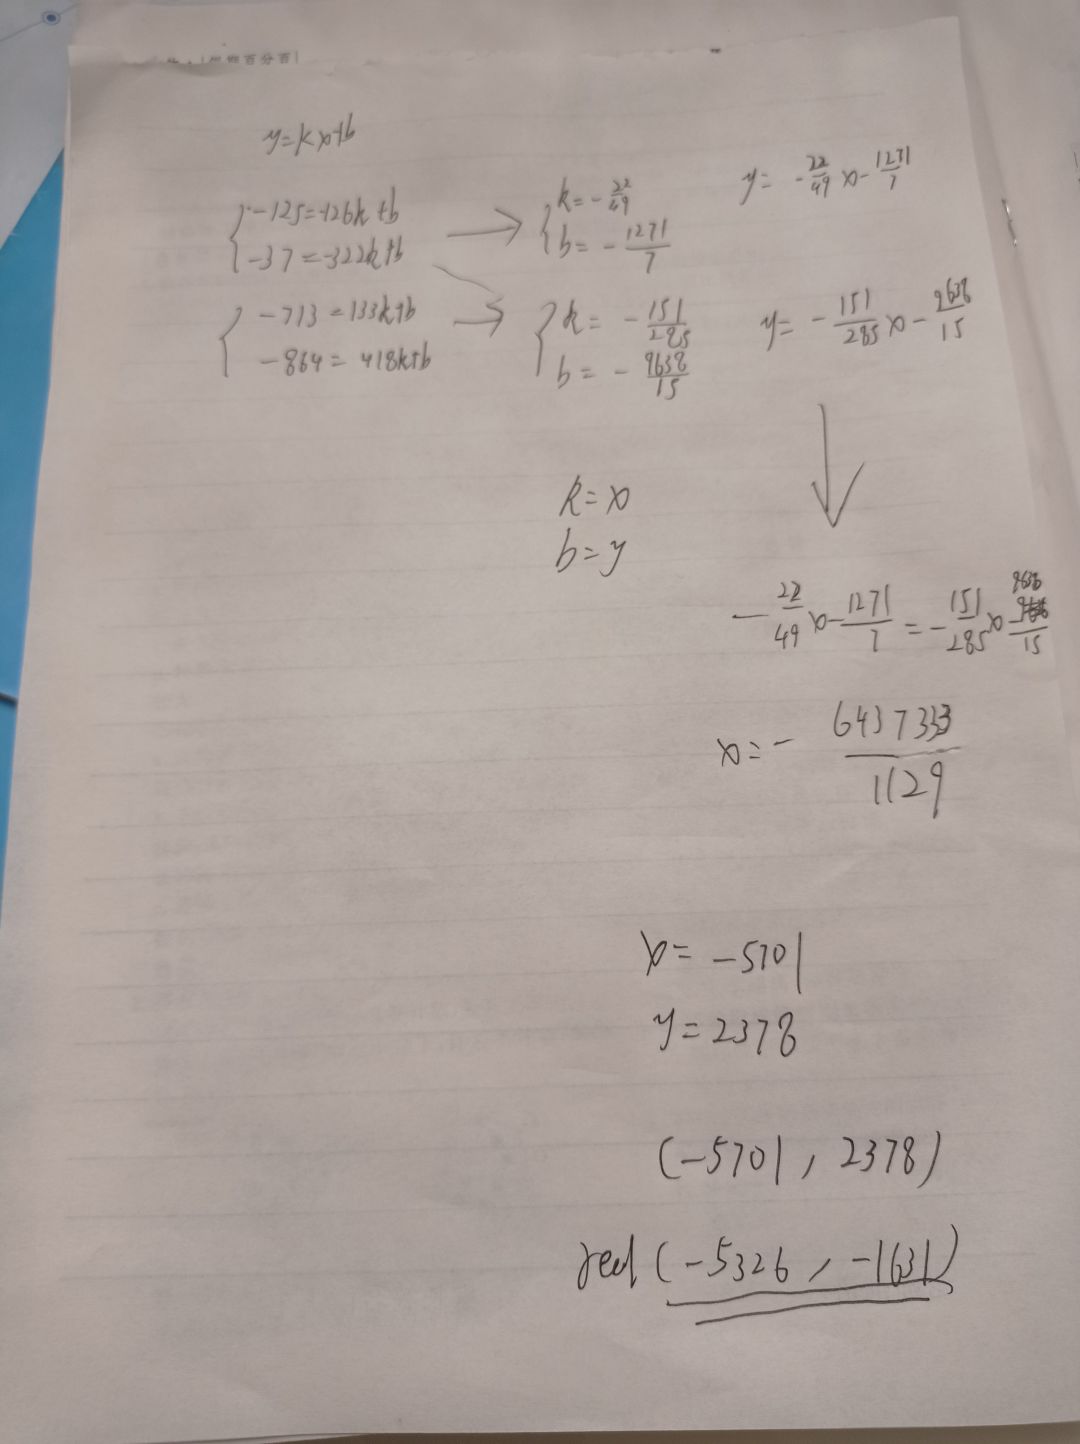 百分百
y=kx+b
{-125=126k+b
-37=-322k+b
{k=-22/49
b=-1271/7
y=-22/49x-1271/7
{-713=133k+b
-864=418k+b
{k=-151/285
b=-9638/15
y=-151/285x-9638/15
k=x
b=y
-22/49x-1271/7=-151/285x 9638/15
x=-6437333/1129
x=-5701
y=2378
(-5701,2378)
real(-5326,-1631)